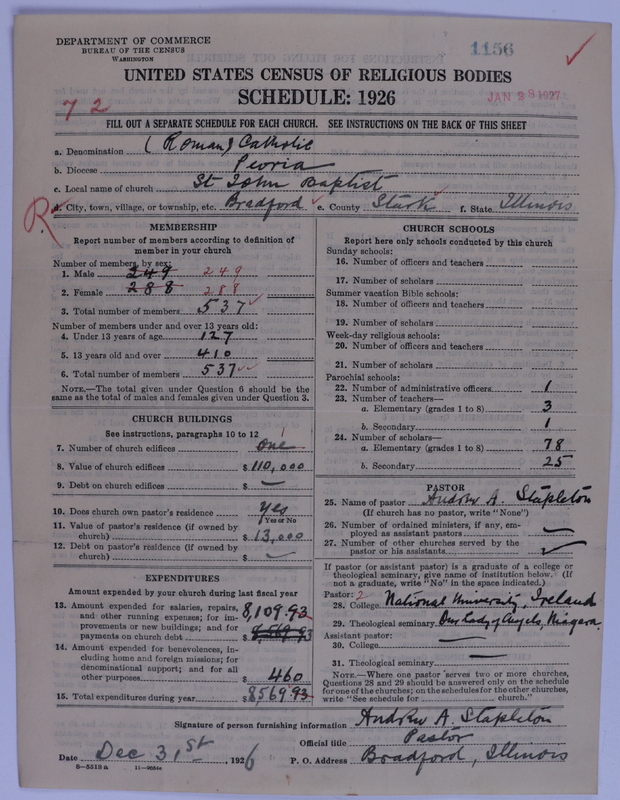 DEPARTMENT OF COMMERCE
BUREAU OF THE CENSUS
WASHINGTON
1156
UNITED STATES CENSUS OF RELIGIOUS BODIES
SCHEDULE: 1926
JAN 28 1927
72
FILL OUT A SEPARATE SCHEDULE FOR EACH CHURCH. SEE INSTRUCTIONS ON THE BACK OF THIS SHEET
a. Denomination (Roman) Catholic
b. Diocese Peoria
c. Local name of church St John Baptist
R
d. City, town, village, or township, etc. Bradford e. County Stark f. State Illinois
MEMBERSHIP
Report number of members according to definition of
member in your church
Number of members, by sex:
1. Male 249 249
2. Female 288 288
3. Total number of members 537
Number of members under and over 13 years old:
4. Under 13 years of age 127
5. 13 years old and over 410
6. Total number of members 537
NOTE.—The total given under Question 6 should be the
same as the total of males and females given under Question 3.
CHURCH BUILDINGS
See instructions, paragraphs 10 to 12
7. Number of church edifices one 1
8. Value of church edifices $ 110,000
9. Debt on church edifices $ —
10. Does church own pastor's residence? Yes
Yes or No
11. Value of pastor's residence (if owned by
church) $ 13,000
12. Debt on pastor's residence (if owned by
church) $
EXPENDITURES
Amount expended by your church during last fiscal year
13. Amount expended for salaries, repairs,
and other running expenses; for im-
provements or new buildings; and for
payments on church debt $ 8,109.93 8,569.93
14. Amount expended for benevolences, in-
cluding home and foreign missions; for
denominational support; and for all
other purposes $ 460
15. Total expenditures during year $ 8569.93
CHURCH SCHOOLS
Report here only schools conducted by this church
Sunday schools:
16. Number of officers and teachers
17. Number of scholars
Summer vacation Bible schools:
18. Number of officers and teachers
19. Number of scholars
Week-day religious schools:
20. Number of officers and teachers
21. Number of scholars
Parochial schools:
22. Number of administrative officers 1
23. Number of teachers—
a. Elementary (grades 1 to 8) 3
b. Secondary 1
24. Number of scholars—
a. Elementary (grades 1 to 8) 78
b. Secondary 25
PASTOR
25. Name of pastor Andrew A. Stapleton
(If church has no pastor, write "None")
26. Number of ordained ministers, if any, em-
ployed as assistant pastors —
27. Number of other churches served by the
pastor or his assistants
If pastor (or assistant pastor) is a graduate of a college or
theological seminary, give name of institution below. (If
not a graduate, write "No" in the space indicated.)
Pastor: 2
28. College National University, Ireland
29. Theological seminary Our Lady of Angels, Niagara.
Assistant pastor:
30. College —
31. Theological seminary —
NOTE.—Where one pastor serves two or more churches,
Questions 28 and 29 should be answered only on the schedule
for one of the churches; on the schedules for the other churches,
write "See schedule for church."
Signature of person furnishing information Andrew A. Stapleton
Official title Pastor
Date Dec 31st, 1926 P. O. Address Bradford, Illinois